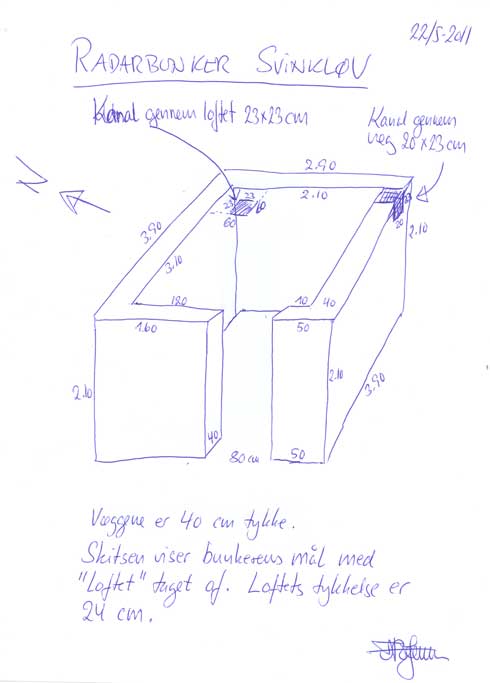 22/5-2011
RADARBUNKER SVINKLØV
Kanal gennem loftet 23x23cm
Kanal gennem
væg 20x23cm
2.90
2.10
23
23
60
60
20
2.10
3.90
3.10
120
1.60
10
40
50
2.10
40
80 cm
50
2.10
3.90
N
Væggene er 40 cm tykke.
Skitsen viser bunkerens mål med
"Loftet" taget af. Loftets tykkelse er
24 cm.